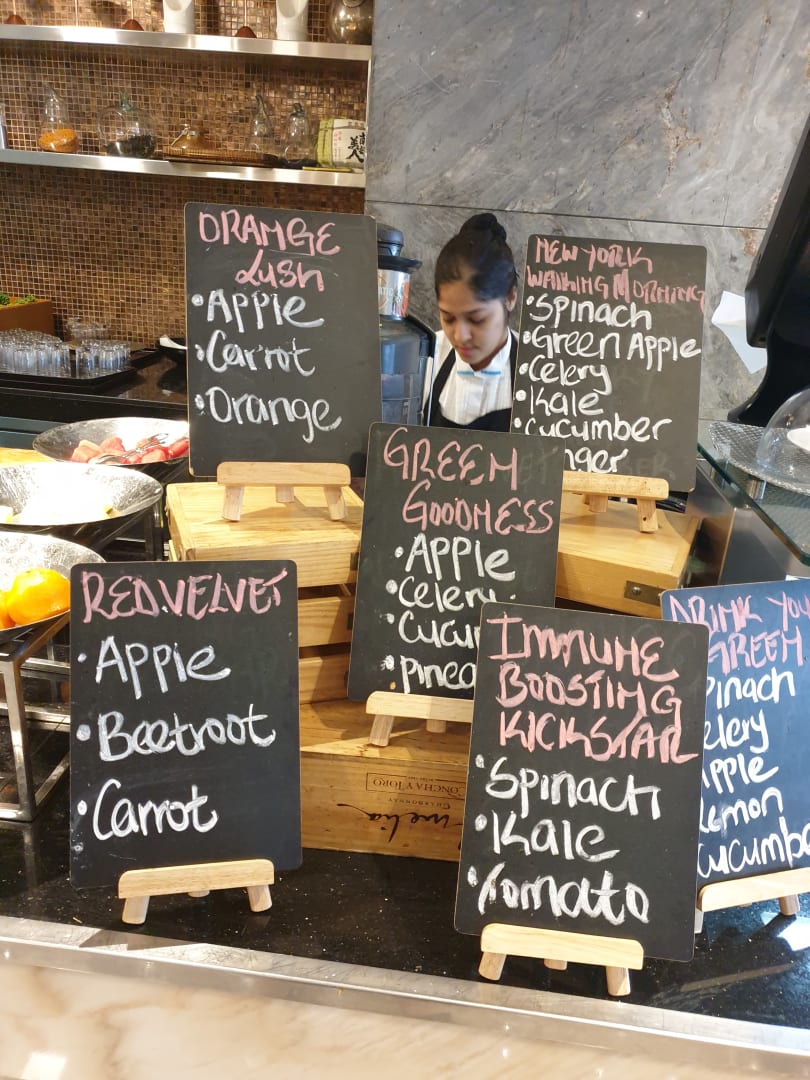 ORANGE
Lush
•Apple
•Carrot
•Orange
NEW YORK
WALKING MORNING
•Spinach
•Green Apple
•Celery
•Kale
•Cucumber
nger
GREEN
GOODNESS
•Apple
•Celery
•Cucu
•Pinea
RED VELVET
•Apple
•Beetroot
•Carrot
IMMUNE
BOOSTING
KICKSTAR
•Spinach
•Kale
•Tomato
DRINK YOU
GREEN
pinach
elery
pple
Lemon
Cucumbe
CONCHA Y TORO
CHARDONNAY
melia
美人